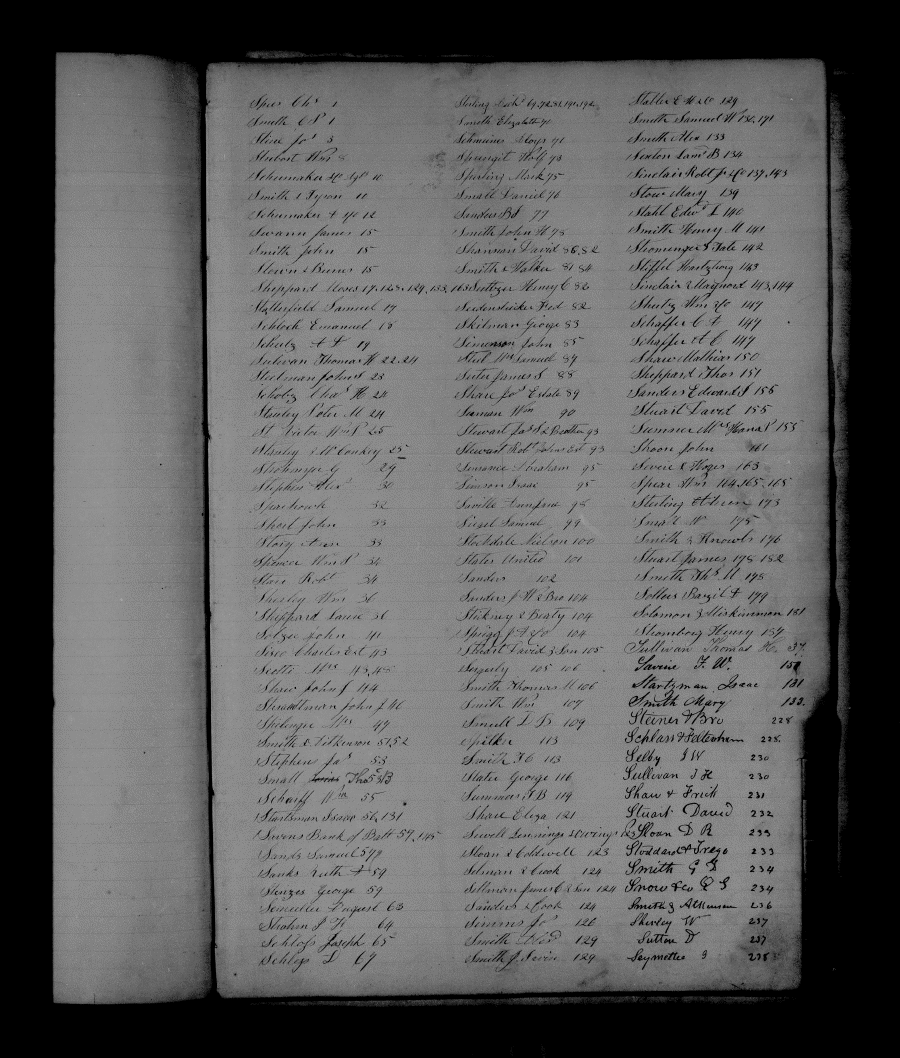 Spies Chs 1
Smith C S 1
Stine Jos 3
Stubart Wm 8
Schumaker & Co 10
Smith & Tyson 10
Schumaker & Co 12
Swann James 15
Smith John 15
Stowe & Bunes 15
Sheppard Moses 17, 128, 129, 133, 163
Satterfield Samuel 17
Schlock Emanuel 18
Schultz 19
Sulivan Thomas H 22, 24
Steilman John S 23
Scholtz Chas H 24
Stanley Peter M 24
St Victor Wm P 25
Stanley & McConkey 25
Strohmyer G 29
Stephen Alex 30
Sparhawk 32
Short John 33
Story Ann 33
Spencer Wm S 34
Starr Robt 34
Shirley Wm 36
Sheppard 36
Seltzer John 41
Charles Est 43
Scotti Mrs 43, 45
Shaw John J 44
Straultman John J 46
Mrs 49
Smith & Atkinson 51, 52
Stephen Jas 53
Small Thos 53
Scharff Wm 55
Startsman Isaac 56, 131
Savings Bank of Balt 57, 145
Sands Samuel 57
Sanks 59
Stenzes George 59
August 63
Strahn J 64
Schloss Joseph 65
Schloss L 69
Sterling 69, 72, 82, 191, 192
Smith Elizabeth 71
Schreiner 71
Spengit Wolf 73
Sperling Mark 75
Small Daniel 76
Sanders B S 77
Smith John H 78
Shannan David 86, 82
Smith & Walker 81 84
Suttzer Henry C 82
Seidenstricker Fred 82
Skilman George 83
Simonson John 85
Steel Samuel 87
Suter James S 88
Share Jos Estate 89
Seaman Wm 90
Stewart Jas S & Brother 93
Stewart Robt Johns Est 93
Severance Abraham 95
Simson Isaac 95
Saville 98
Siegel Samuel 99
Stockdale Nielson 100
States United 101
Sanders 102
Sanders J H & Bro 104
Stickney & Beaty 104
Sprigg J A & Co 104
Stuart David & Son 105
105 106
Smith Thomas M 106
Smith Wm 107
Small L B 109
Spilker 113
Smith 113
Slater George 116
Summers J B 119
Shaw Eliza 121
Sewell Jennings & Owings
Sloan & Coldwell 123
Selman & Cook 124
Sellman James C & Son 124
Sanders & Cook 124
Simms Jos 126
Smith 129
Smith J Irvin 129
Staller & Co 129
Smith Samuel W 130, 191
Smith Alex 133
Sexton Saml B 134
Sinclair Robt Jr & Co 137, 143
Stow Mary 139
Stahl Edwd L 140
Smith Henry M 141
Strominger & Tate 142
Stiffel Hartzberg 143
Sinclair & Maynard 143, 144
Shultz Wm & Co 147
Schaffer C F 147
Schaffer A C 147
Shaw Mathias 150
Sheppard Thos 151
Sanders Edward S 155
Stuart David 155
Sumner Mrs Hana P 155
Stroon John 161
Sevier & Hoges 163
Spear Wm 164, 165, 168
Sterling 173
Small W 175
Smith & Knowls 176
Stuart James 178 182
Smith Thos M 178
Sollers Bazil 179
Solomon & Miskimmon 181
Stromberg Henry 184
Sullivan Thomas H. 37
Savine F. W. 151
Startzman Isaac 131
Smith Mary 133.
Steiner & Bro 228
Schlass & Feltenham 228.
Selby J W 230
Sullivan J H 230
Shaw & Frick 231
Stuart David 232
Sloan D R 233
Stoddard & Trego 233
Smith G G 234
Snow & Co R G 234
Smith & Atkinson 236
Shirley W 237
Sutton D 237
Seymetter J 238